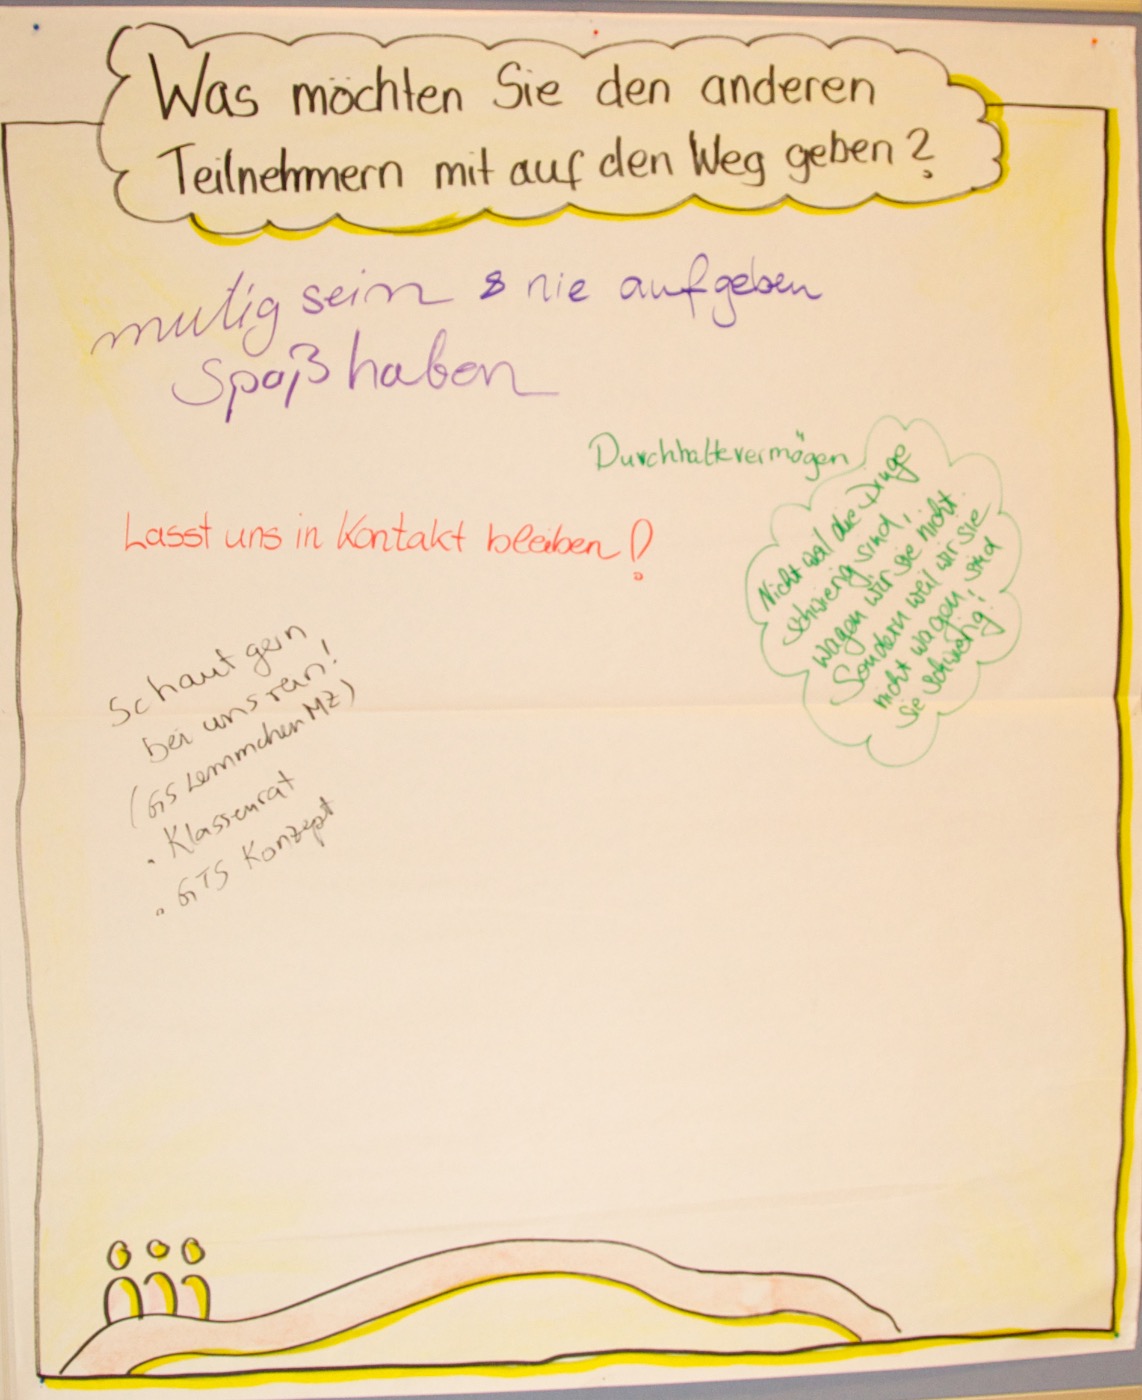 Was möchten Sie den anderen
Teilnehmern mit auf den Weg geben?
mutig sein & nie aufgeben
Spaß haben
Durchhaltevermögen
Nicht weil die Dinge
schwierig sind,
wagen wir sie nicht.
Sondern weil wir sie
nicht wagen, sind
sie schwierig!
Lasst uns in Kontakt bleiben!
Schaut gern
bei uns rein!
(GS Lemmchen MZ)
. Klassenrat
. GTS Konzept